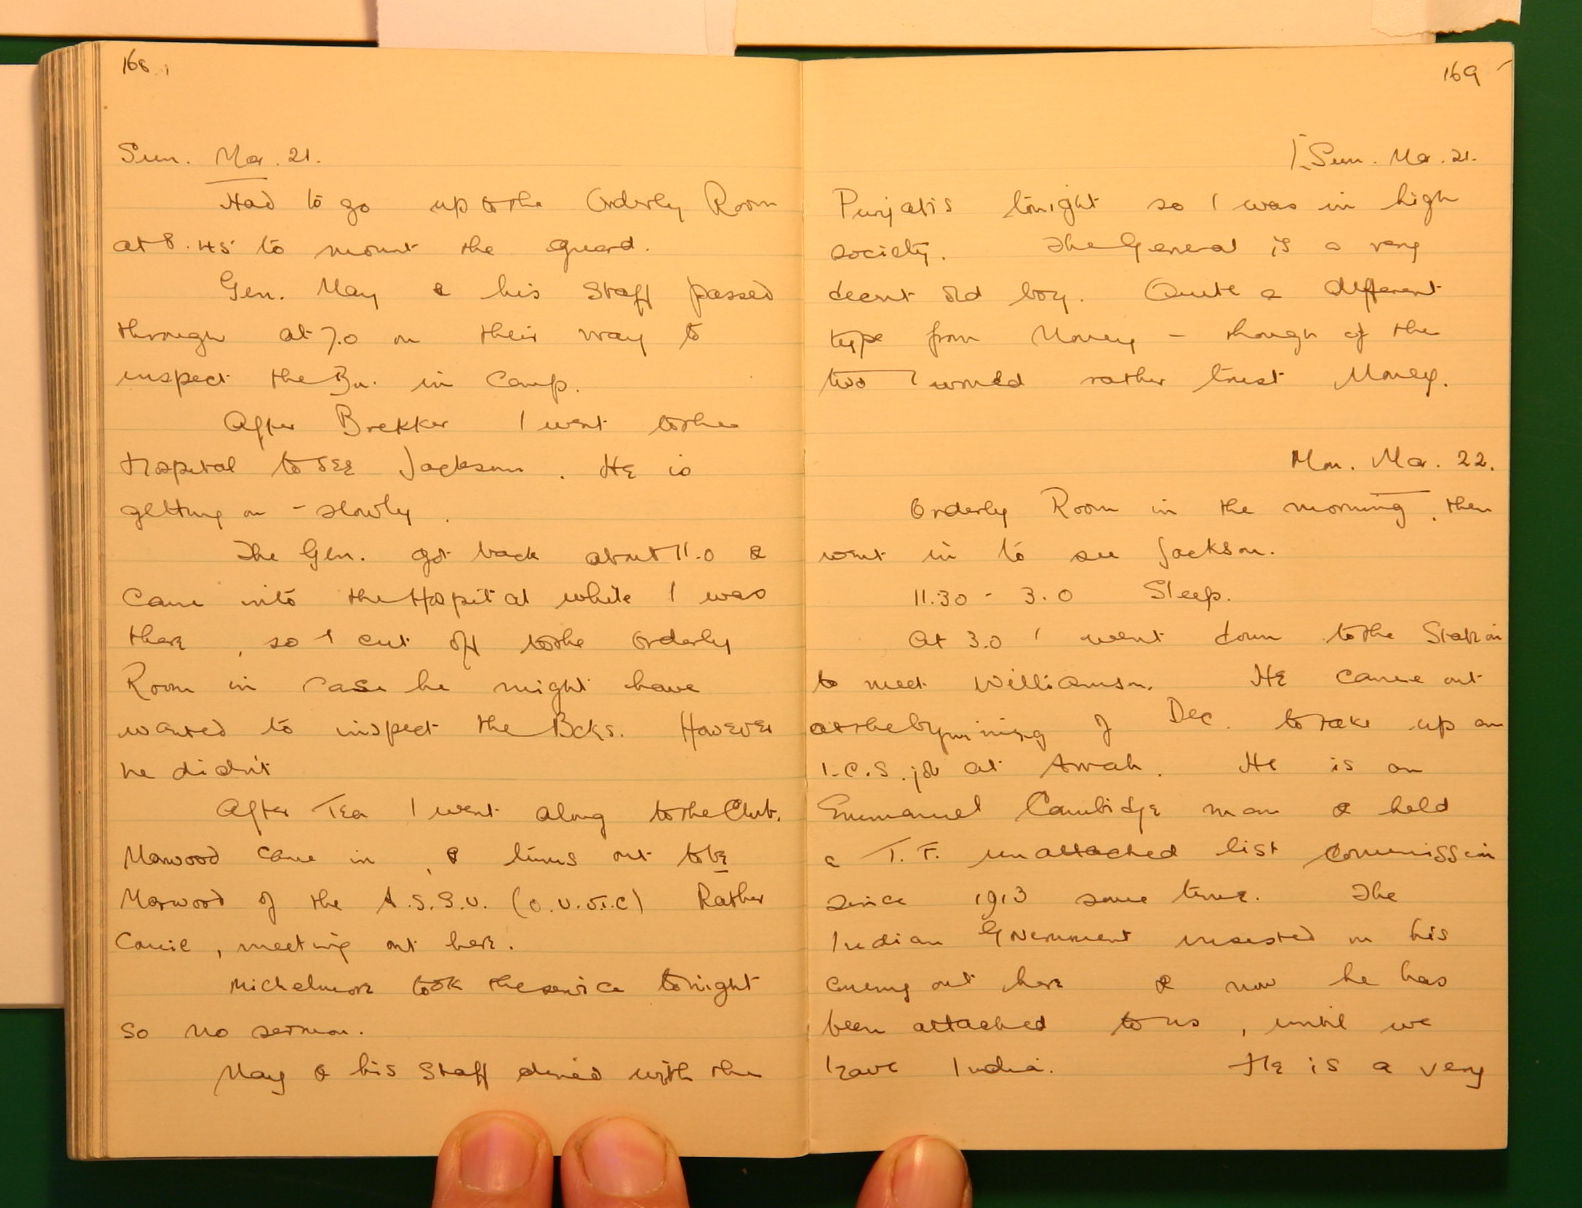 168
Sun. Mar. 21.
Had to go up to the Orderly Room
at 8.45 to mount the guard.
Gen. May & his Staff passed
through at 7.0 on their way to
inspect the Bn. in Camp.
After Brekker I went to the
Hospital to see Jackson. He is
getting on - slowly.
The Gen. got back about 11.0 &
came into the Hospital while I was
there, so I cut off to the Orderly
Room in case he might have
wanted to inspect the Bcks. However
he didn't
After Tea I went along to the Club.
Marwood came in, & turns out to be
Marwood of the A.S.S.U. (O.U.O.T.C) Rather
comic, meeting out here.
Michelmore took the service tonight
so no sermon.
May & his Staff dined with the
169
[Sun. Mar. 21.
Punjabis tonight so I was in high
society. The General is a very
decent old boy. Quite a different
type from Money - though of the
two I would rather trust Money.
Mon. Mar. 22.
Orderly Room in the morning, then
went in to see Jackson.
11.30 - 3.0 Sleep.
At 3.0 I went down to the Station
to meet Williamson. He came out
at the beginning of Dec. to take up an
I.C.S. job at Arrah. He is an
Emmanuel Cambidge man & held
a T.F. unattached list commission
since 1913 some time. The
Indian Government insisted on his
coming out here & now he has
been attached to us, until we
leave India. He is a very